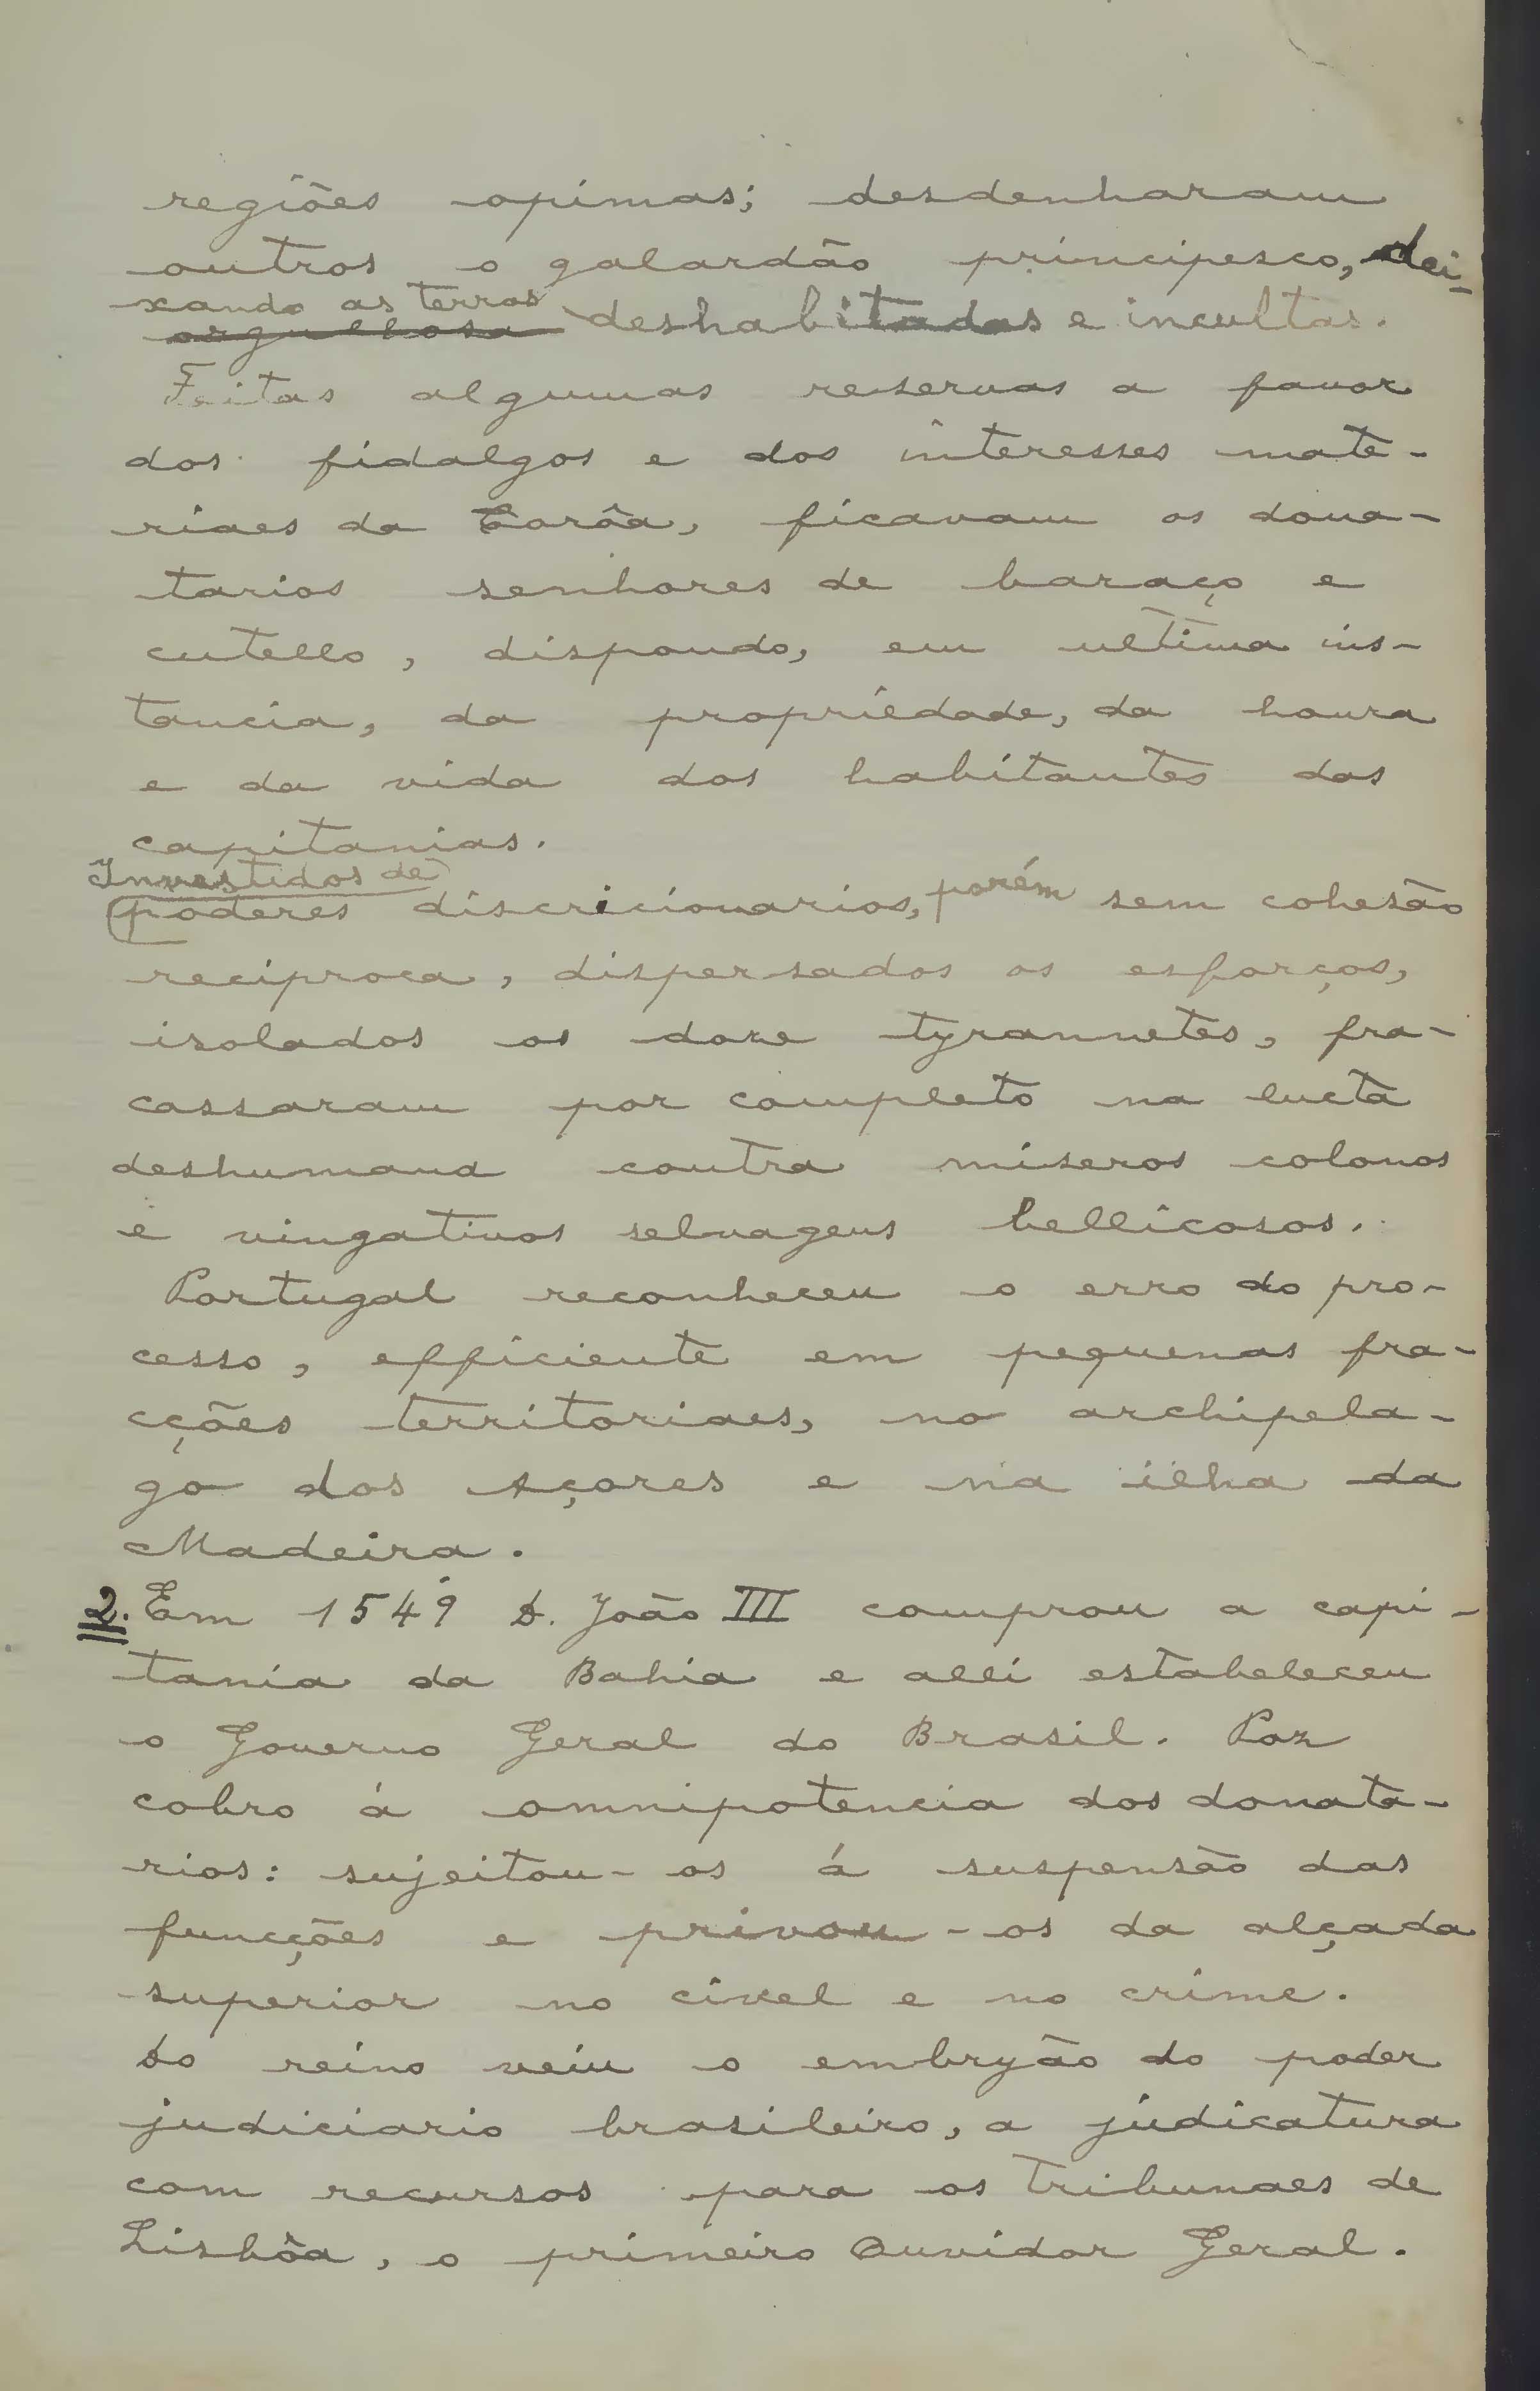 regiões opimas; desdenharam
outros o galardão principesco, dei-
xando as terras
orgulhosa deshabitadas e incultas.
Feitas algumas reservas a favor
dos fidalgos e dos interesses mate-
riaes da Corôa, ficavam os dona-
tarios senhores de baraço e
cutello, dispondo, em ultima ins-
tancia, da propriedade, da honra
e da vida dos habitantes das
capitanias.
Investidos de
poderes discricionarios, porém sem cohesão
reciproca, dispersados os esforços,
isolados os doze tyrannetes, fra-
cassaram por completo na lucta
deshumana contra míseros colonos
e vingativos selvagens bellicosos.
Portugal reconheceu o erro do pro-
cesso, efficiente em pequenas fra-
cções territoriaes, no archipela-
go dos Açores e na ilha da
Madeira.
2. Em 1549 D. João III comprou a capi-
tania da Bahia e alli estabeleceu
o Governo Geral do Brasil. Poz
cobro á omnipotencia dos donata-
rios: sujeitou-os á suspensão das
funcções e privou-os da alçada
superior no civel e no crime.
Do reino veiu o embryão do poder
judiciario brasileiro, a judicatura
com recursos para os Tribunaes de
Lisbôa, o primeiro Ouvidor Geral.